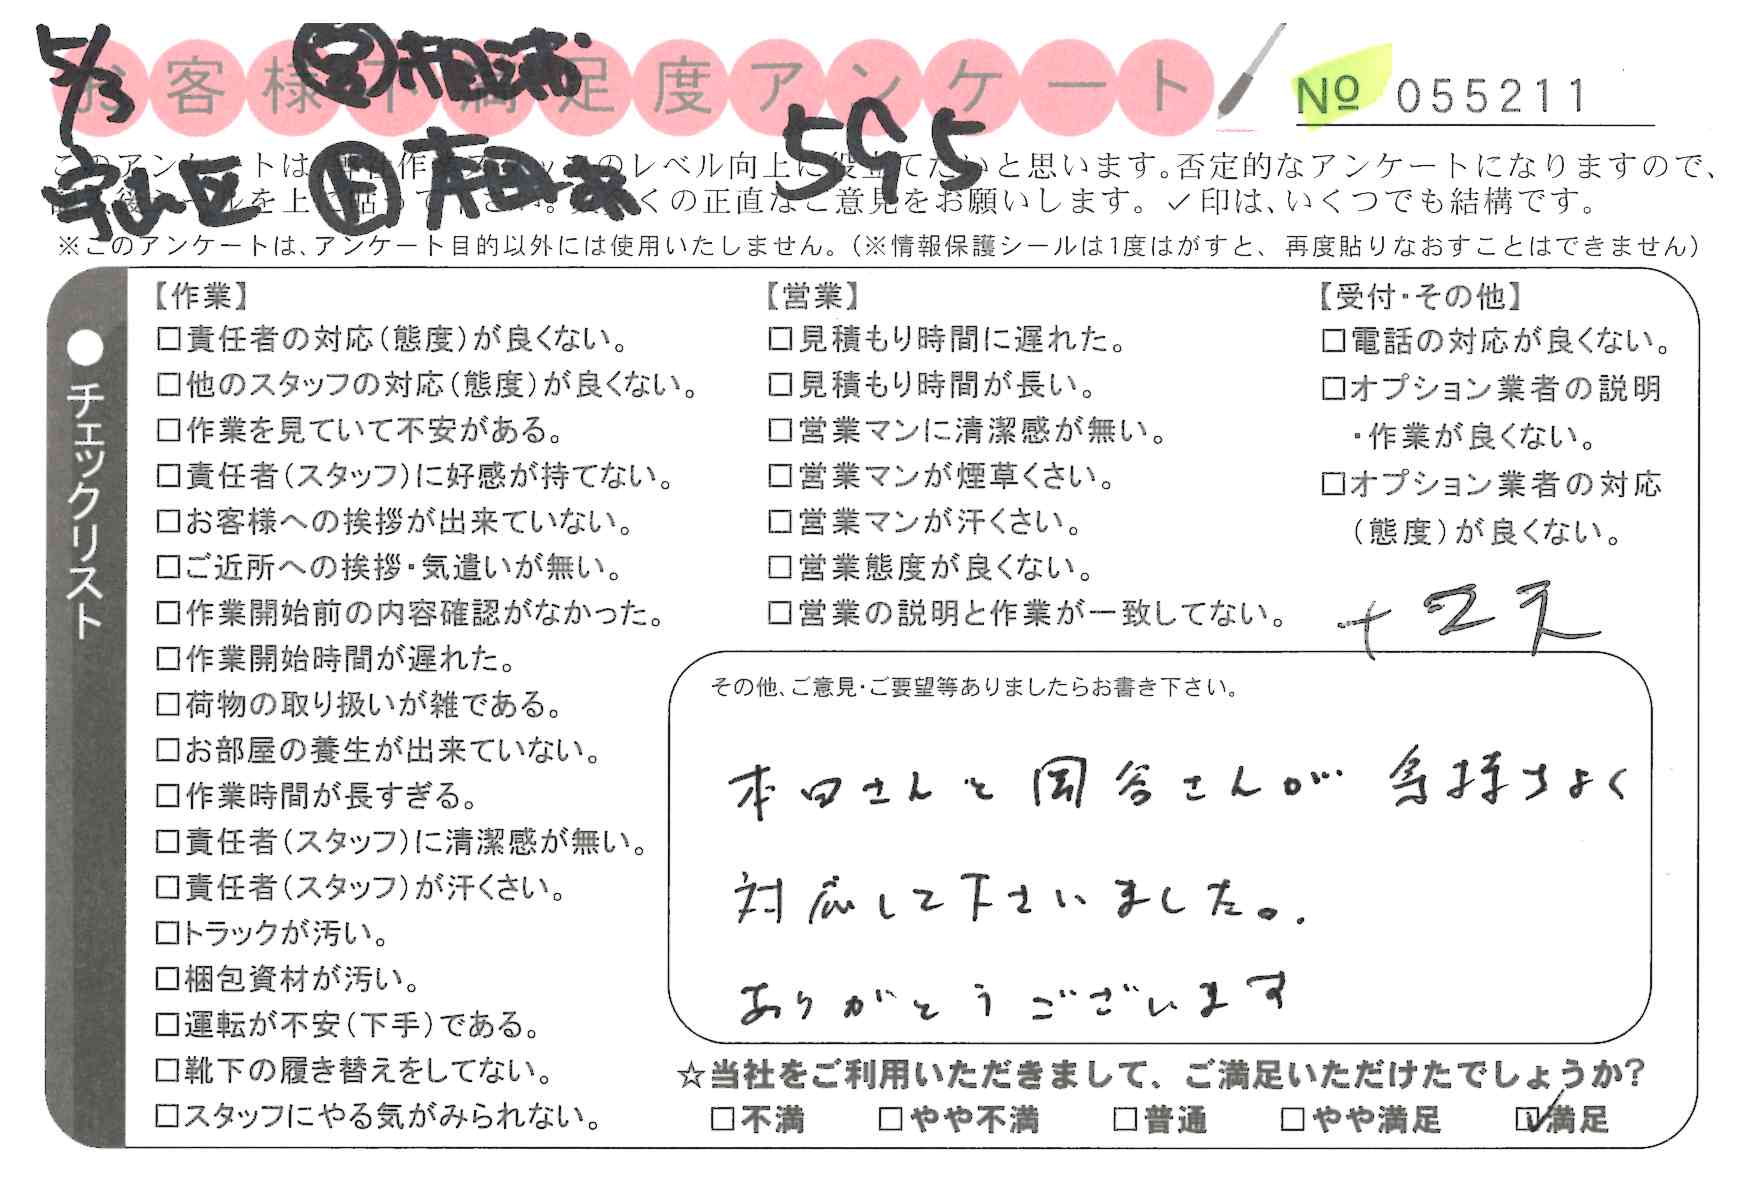 5/3
お客様不満足度アンケート
№ 055211
595
このアンケートは のレベル向上に役立てたいと思います。否定的なアンケートになりますので、
くの正直なご意見をお願いします。✓印は、いくつでも結構です。
※このアンケートは、アンケート目的以外には使用いたしません。(※情報保護シールは1度はがすと、再度貼りなおすことはできません)
●チェックリスト
【作業】
□責任者の対応(態度)が良くない。
□他のスタッフの対応(態度)が良くない。
□作業を見ていて不安がある。
□責任者(スタッフ)に好感が持てない。
□お客様への挨拶が出来ていない。
□ご近所への挨拶・気遣いが無い。
□作業開始前の内容確認がなかった。
□作業開始時間が遅れた。
□荷物の取り扱いが雑である。
□お部屋の養生が出来ていない。
□作業時間が長すぎる。
□責任者(スタッフ)に清潔感が無い。
□責任者(スタッフ)が汗くさい。
□トラックが汚い。
□梱包資材が汚い。
□運転が不安(下手)である。
□靴下の履き替えをしてない。
□スタッフにやる気がみられない。
【営業】
□見積もり時間に遅れた。
□見積もり時間が長い。
□営業マンに清潔感が無い。
□営業マンが煙草くさい。
□営業マンが汗くさい。
□営業態度が良くない。
□営業の説明と作業が一致してない。
【受付・その他】
□電話の対応が良くない。
□オプション業者の説明
・作業が良くない。
□オプション業者の対応
(態度)が良くない。
その他、ご意見・ご要望等ありましたらお書き下さい。
本田さんと岡谷さんが気持ちよく
対応して下さいました。
ありがとうございます
☆当社をご利用いただきまして、ご満足いただけたでしょうか?
□不満 □やや不満 □普通 □やや満足 ☑満足